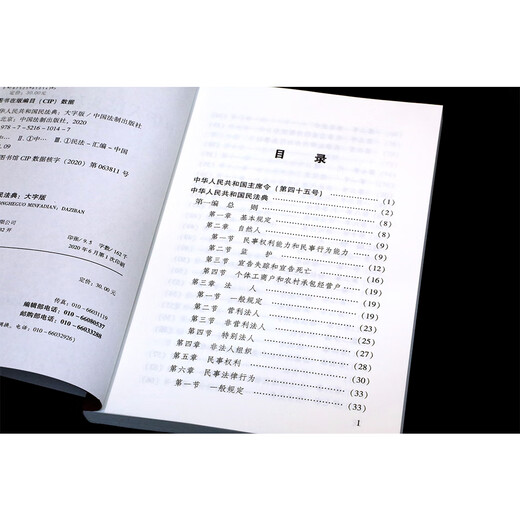 定价：30.00元
图书在版编目（CIP）数据
华人民共和国民法典：大字版／中国法制出版社
北京：中国法制出版社，2020
978-7-5216-1014-7
Ⅱ.①中… Ⅲ.①民法-汇编-中国
.09
图书馆CIP数据核字（2020）第063811号
民法典：大字版
NGHEGUO MINFADIAN: DAZIBAN
印张/9.5 字数/162千
2020年6月第1次印刷
定价：30.00元
传真：010-66031119
编辑部电话：010-66080537
邮购部电话：010-66033288
目 录
中华人民共和国主席令（第四十五号）（1）
中华人民共和国民法典（2）
第一编 总 则（8）
第一章 基本规定（8）
第二章 自然人（9）
第一节 民事权利能力和民事行为能力（9）
第二节 监 护（12）
第三节 宣告失踪和宣告死亡（16）
第四节 个体工商户和农村承包经营户（19）
第三章 法 人（19）
第一节 一般规定（19）
第二节 营利法人（23）
第三节 非营利法人（25）
第四节 特别法人（27）
第四章 非法人组织（28）
第五章 民事权利（30）
第六章 民事法律行为（33）
第一节 一般规定（33）
1